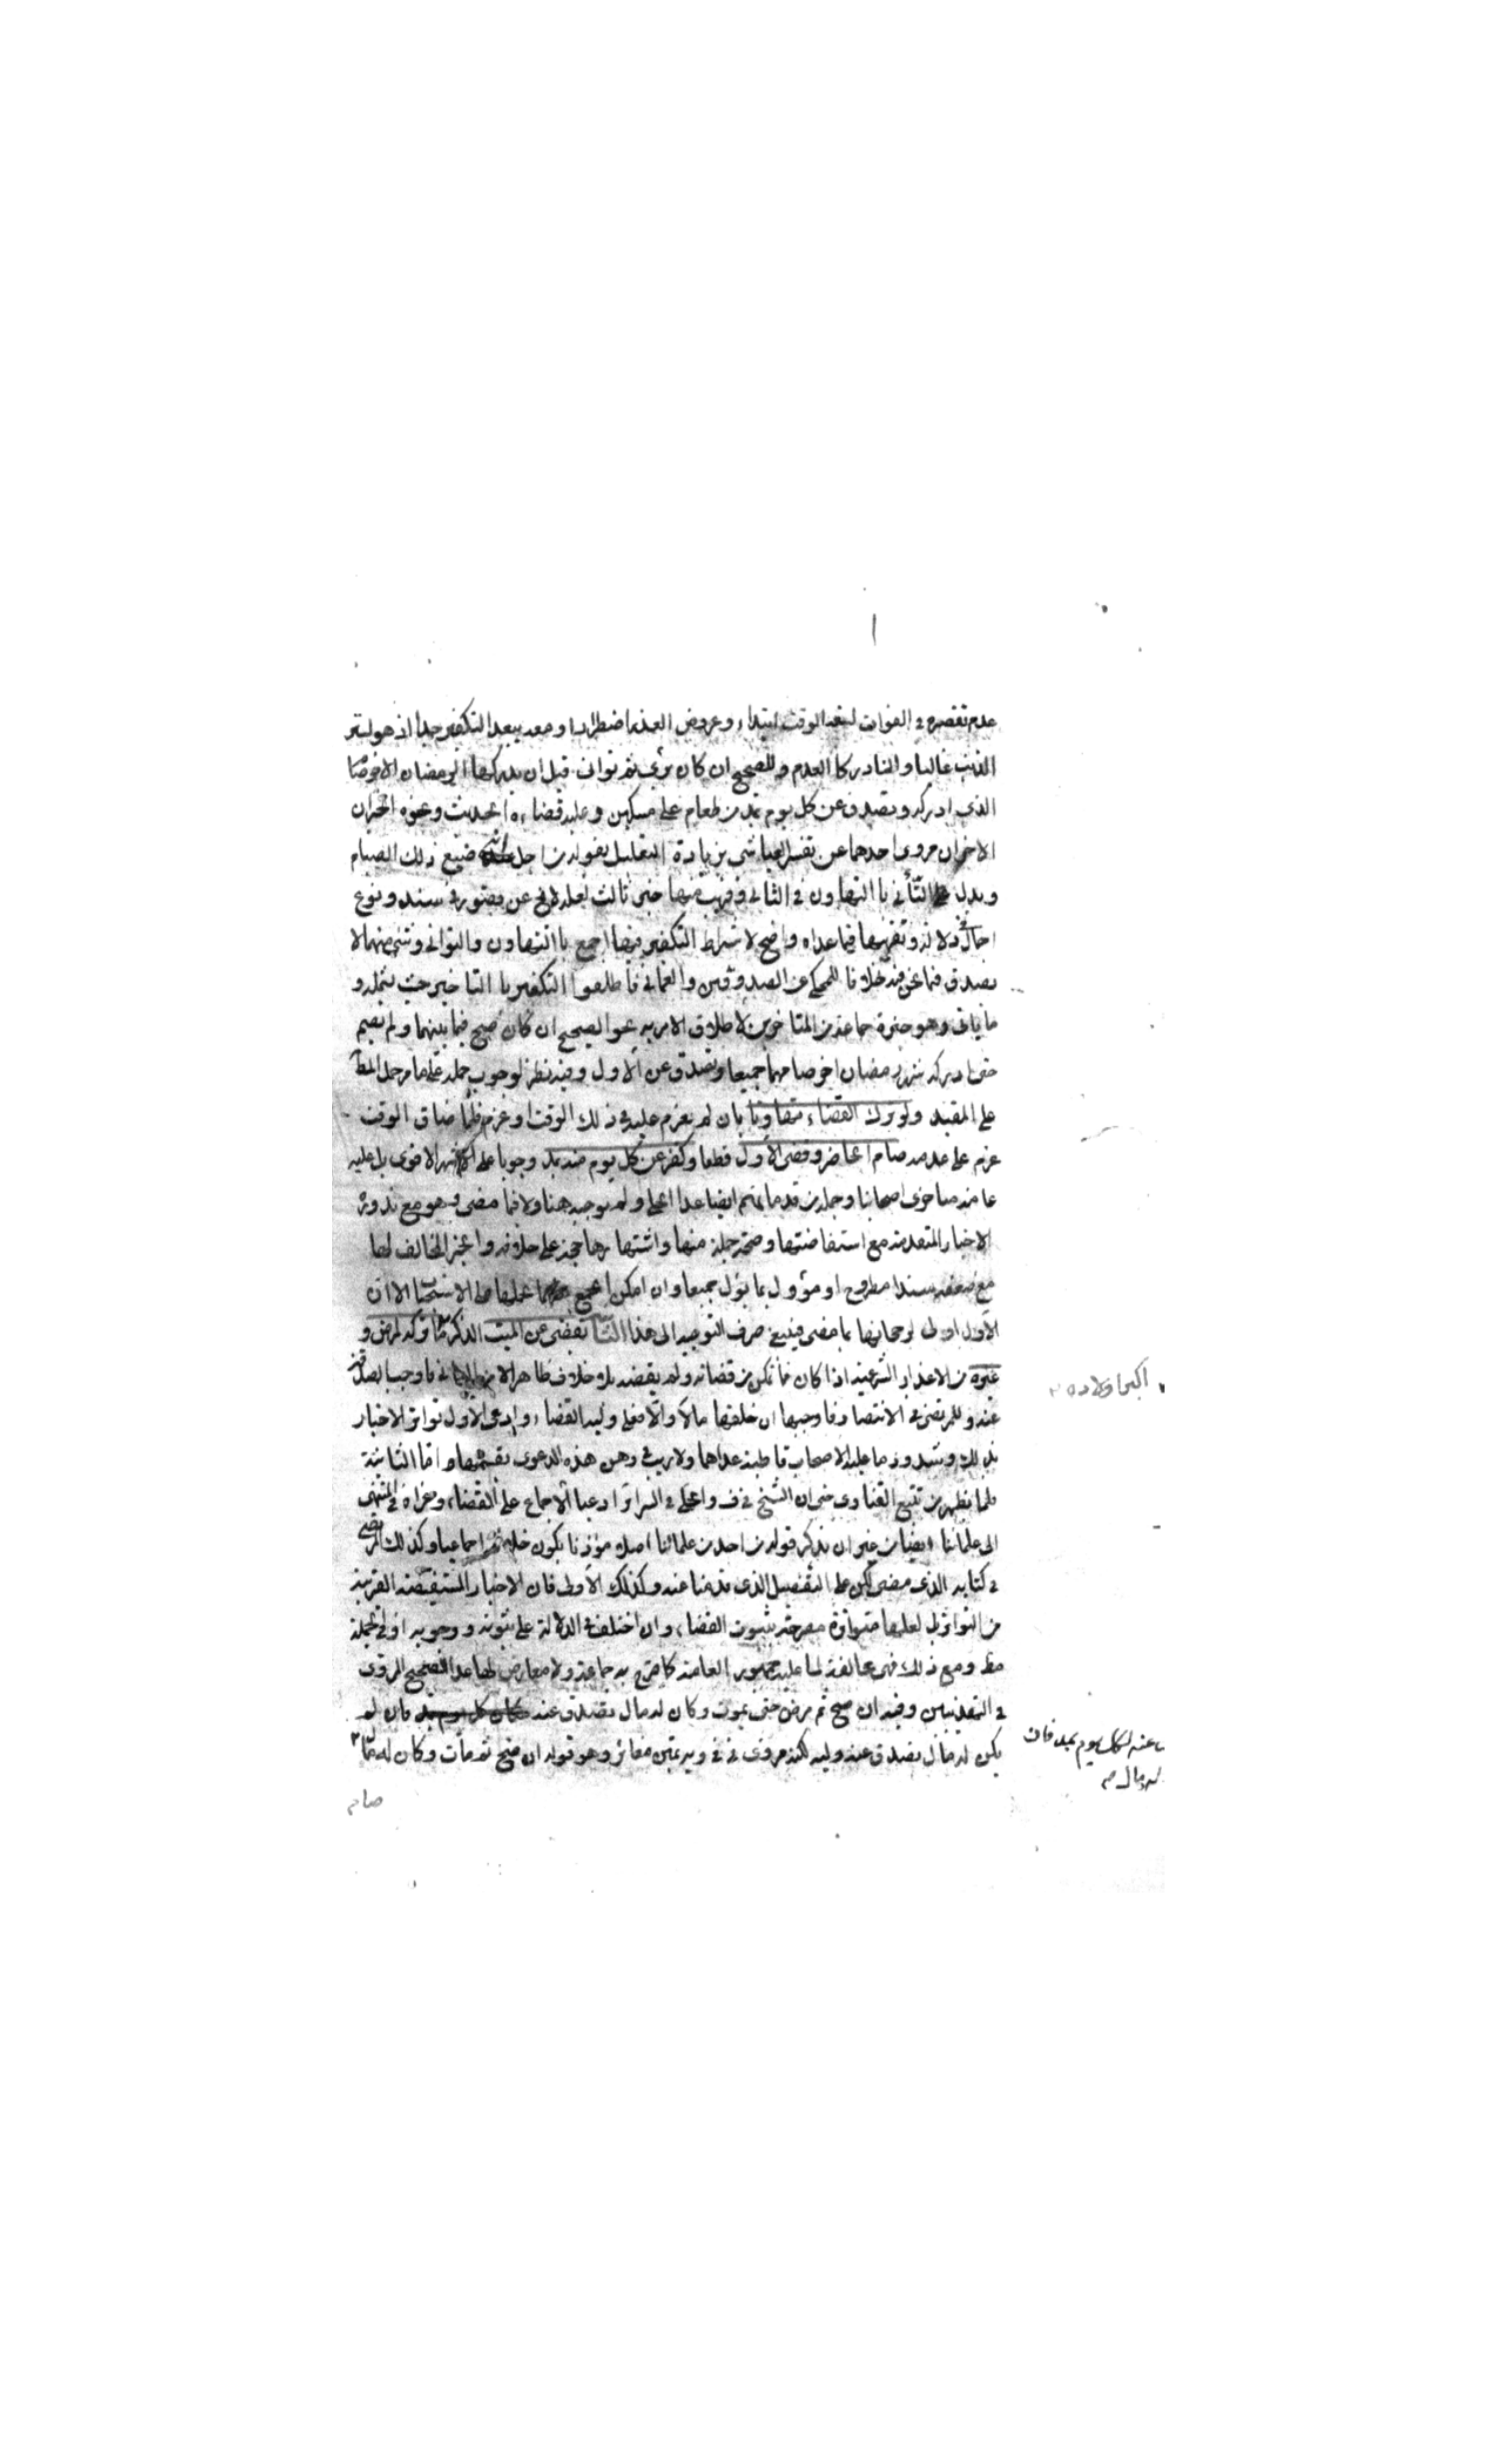 عدم تقصيره في الفوات لسعة الوقت ابتداء وعروض العذر اضطرارا ومعه يبعد التكفير جدا اذ هو لستر
الذنب غالبا والنادر كالعدم وللصحيح ان كان برئ ثم توانى قبل ان يدركه الرمضان الاخر صام
الذي ادركه وتصدق عن كل يوم بمد من طعام على مسكين وعليه قضاءه الحديث ونحوه الخبران
الاخران مروي احدهما عن تفسير العياشي بزيادة التعليل بقوله من اجل انه ضيع ذلك الصيام
وبدل التأني بالتهاون في الثاني وقريب منها خبر ثالث لعله لا يخ عن قصور في سند ونوع
اجمال في دلالة وتفريعها فيما عداه واضح لاشتراط التكفير فيها اجمع بالتهاون والتواني وشيء منهما لا
يصدق فيما نحن فيه خلافا للمحكي عن الصدوقين والعماني فاطلقوا التكفير بالتاخير حيث يشمله و
ما ياتي وهو خيرة جماعة من المتاخرين لاطلاق الامر به نحو الصحيح ان كان صح فيما بينهما ولم يصم
حتى ادركه شهر رمضان اخر صامهما جميعا وتصدق عن الاول وفيه نظر لوجوب حمله على ما مر حمل المط
على المقيد ولو ترك القضاء تهاونا بان لم يعزم عليه في ذلك الوقت او عزم فلما ضاق الوقت
عزم على عدمه صام الحاضر وقضى الاول قطعا وكفر عن كل يوم منه بمد وجوبا على الاشهر الاقوى بل عليه
عامة متاخري اصحابنا وجملة من قدمائهم ايضا عدا الحلي ولم يوجبه هنا ولا فيما مضى وهو مع ندوره
الاخبار المتقدمة مع استفاضتها وصحة جملة منها واشتهارها حجة على خلافه والخبر المخالف لها
مع ضعفه سندا مطروح او مؤول بما يؤل جميعا وان امكن الجمع بحملها على الاستحباب الا ان
الاول اولى لرجحانها بما مضى فينبغي صرف التوجيه الى هذا الثاني يقضي عن الميت الذكر ما تركه لمرض و
غيره من الاعذار الشرعية اذا كان مما تمكن من قضائه ولم يقضه بلا خلاف ظاهر الا من العماني فاوجب الصدقة
عنه وللمرتضى في الانتصار فاوجبها ان خلف مالا والا فعلى وليه القضاء وادعى الاول تواتر الاخبار
بذلك وشذوذ ما عليه الاصحاب قاطبة عداهما ولا ريب في وهن هذه الدعوى بقسميها واما الثانية
فلما يظهر من تتبع الفتاوى حتى ان الشيخ في ف والحلي في السرائر ادعيا الاجماع على القضاء وعزاه في المنتهى
الى علمائنا ايضا من غير ان يذكر قوله من احد من علمائنا اصلا مؤذنا بكون خلافه اجماعيا وكذلك المرتضى
في كتابه الذي مضى لكن على التفصيل الذي قدمنا عنه وكذلك الاولى فان الاخبار المستفيضة القريبة
من التواتر بل لعلها متواترة مصرحة بثبوت القضاء وان اختلف في الدلالة على ثبوته ووجوبه او في الجملة
مط ومع ذلك فهي مخالفة لما عليه جمهور العامة كما صرح به جماعة ولا معارض لها عدا الصحيح المروي
في التهذيبين وفيه ان صح ثم مرض حتى يموت وكان له مال تصدق عنه فان لم
يكن له مال تصدق عنه وليه لكنه مروي في في ويه بمتن مغائر وهو قوله ان صح ثم مات وكان له مال
صام
اكبر اولاده
عنه لكل يوم بمد فان
له مال